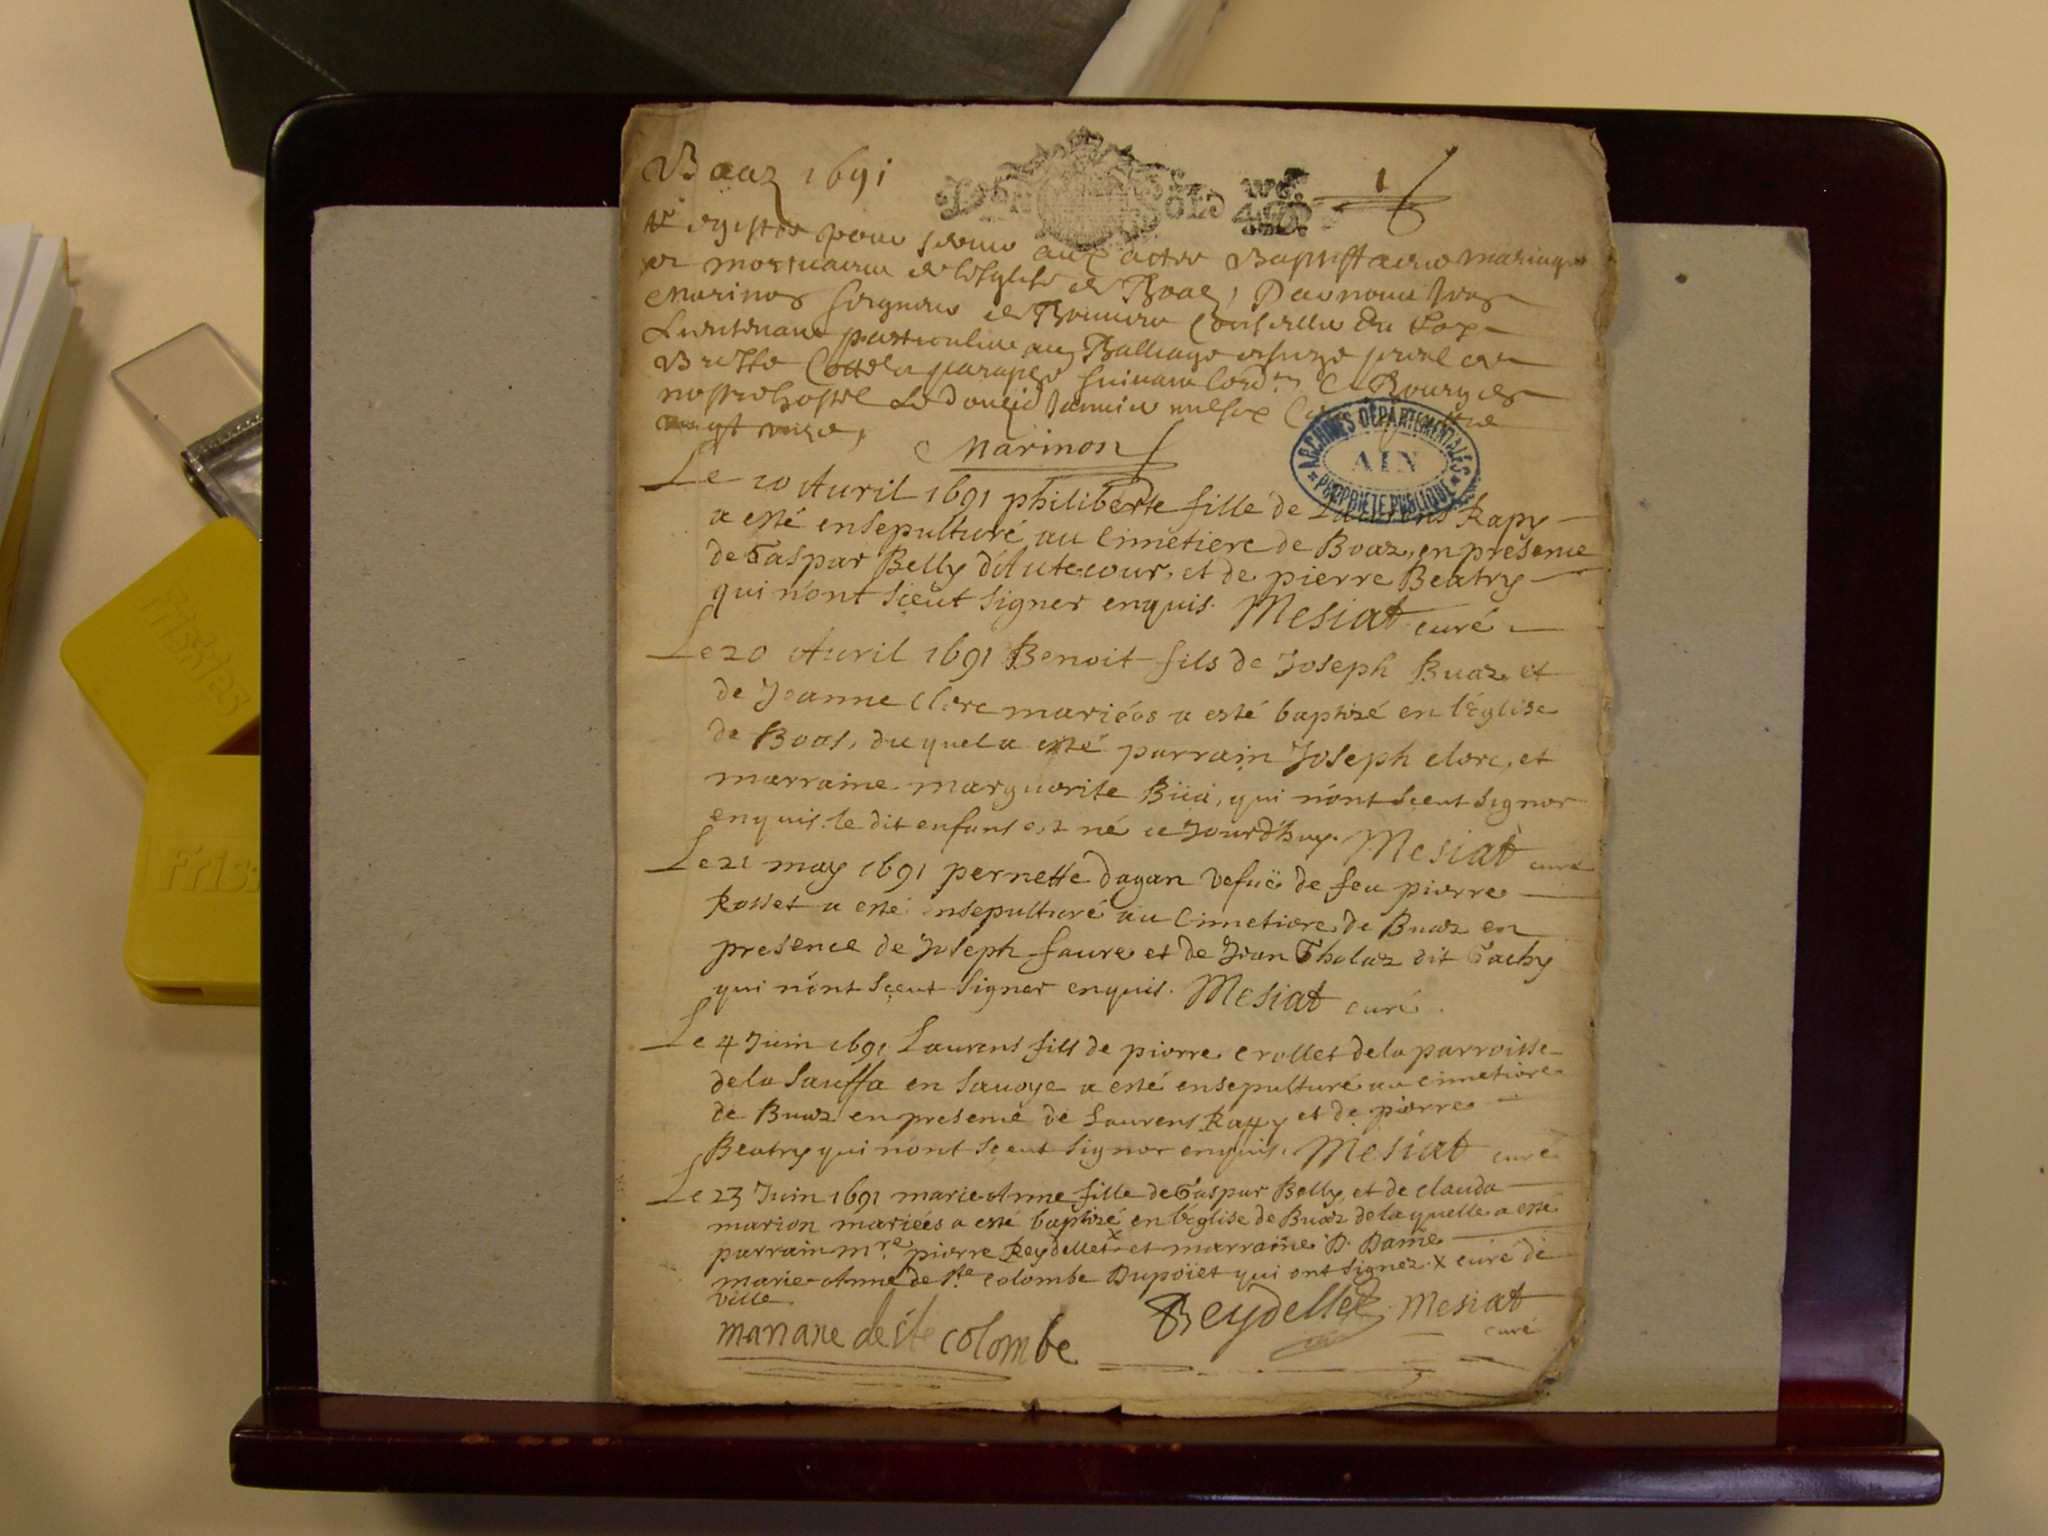 Baaz 1691
1
Registre pour servir aux actes Baptistaires mariages
et mortuaires de l'esglise de Boaz, Par nous
Marinon seigneur de Conseiller du Roy
Lieutenant particulier au Balliage et siege presal de
Bresse Cotté et paraphé suivant l'ordce A Bourg en
nostre hostel Le Janvier mil six
vingt unze,
Marinon
ARCHIVES DÉPARTEMENTALES
AIN
PROPRIÉTÉ PUBLIQUE
Le 10 Avril 1691 philiberte fille de Laurens Rapy
a esté ensepulturé au Cimetiere de Boaz, en presence
de Gaspar Belly d'Autecour, et de pierre Beatry
qui n'ont sçeut signer enquis. Mesiat curé
Le 20 Avril 1691 Benoit fils de Joseph Buaz et
de Jeanne Clerc mariées a esté baptizé en l'église
de Boas, du quel a esté parrain Joseph clerc, et
marraine marguerite Büa, qui n'ont sçeut signer
enquis. le dit enfans est né ce Jourd'huy. Mesiat curé
Le 21 may 1691 pernette dagan vefüe de feu pierre
Rosset a esté ensepulturé au Cimetiere de Buaz en
presence de Joseph faure et de Jean Tholaz dit Gachy
qui n'ont sçeut signer enquis. Mesiat curé.
Le 4 Juin 1691 Laurens fils de pierre crollet de la parroisse
de la Sauffa en Savoye a esté ensepulturé au cimetiere
de Buaz en presence de Laurens Rapy et de pierre
Beatry qui n'ont sçeut signer enquis. Mesiat curé
Le 23 Juin 1691 marie Anne fille de Gaspar Belly, et de clauda
marion mariées a esté baptizé en l'église de Buaz de la quelle a esté
parrain mre pierre Reydellet x et marraine D. Dame
marie Anne de ste colombe Dupoïet qui ont signez. x curé de
ville.
mariane de ste colombe
Reydellet. Mesiat
curé